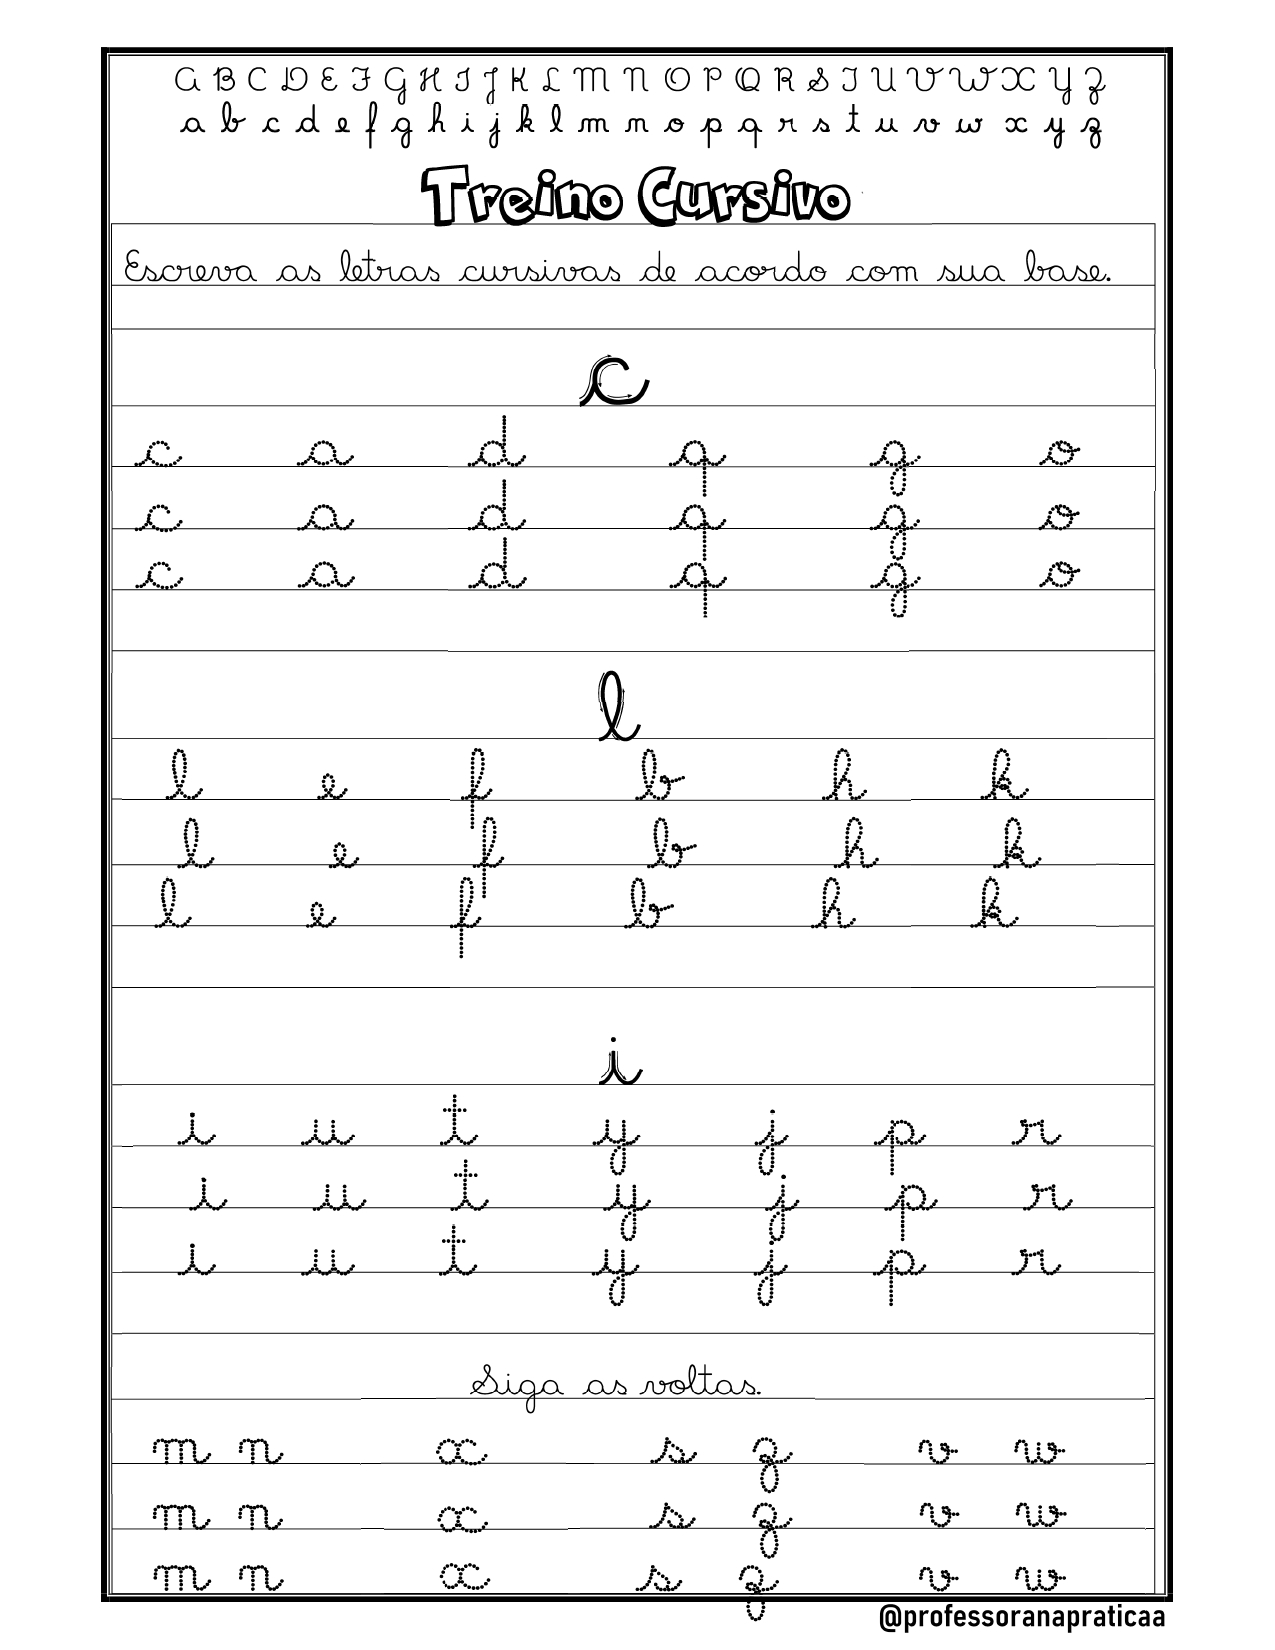 A B C D E F G H I J K L M N O P Q R S T U V W X Y Z
a b c d e f g h i j k l m n o p q r s t u v w x y z
Treino Cursivo
Escreva as letras cursivas de acordo com sua base.
c
c a d q g o
c a d q g o
c a d q g o
l
l e f b h k
l e f b h k
l e f b h k
i
i u t y j p r
i u t y j p r
i u t y j p r
Siga as voltas.
m n x s z v w
m n x s z v w
m n x s z v w
@professoranapraticaa